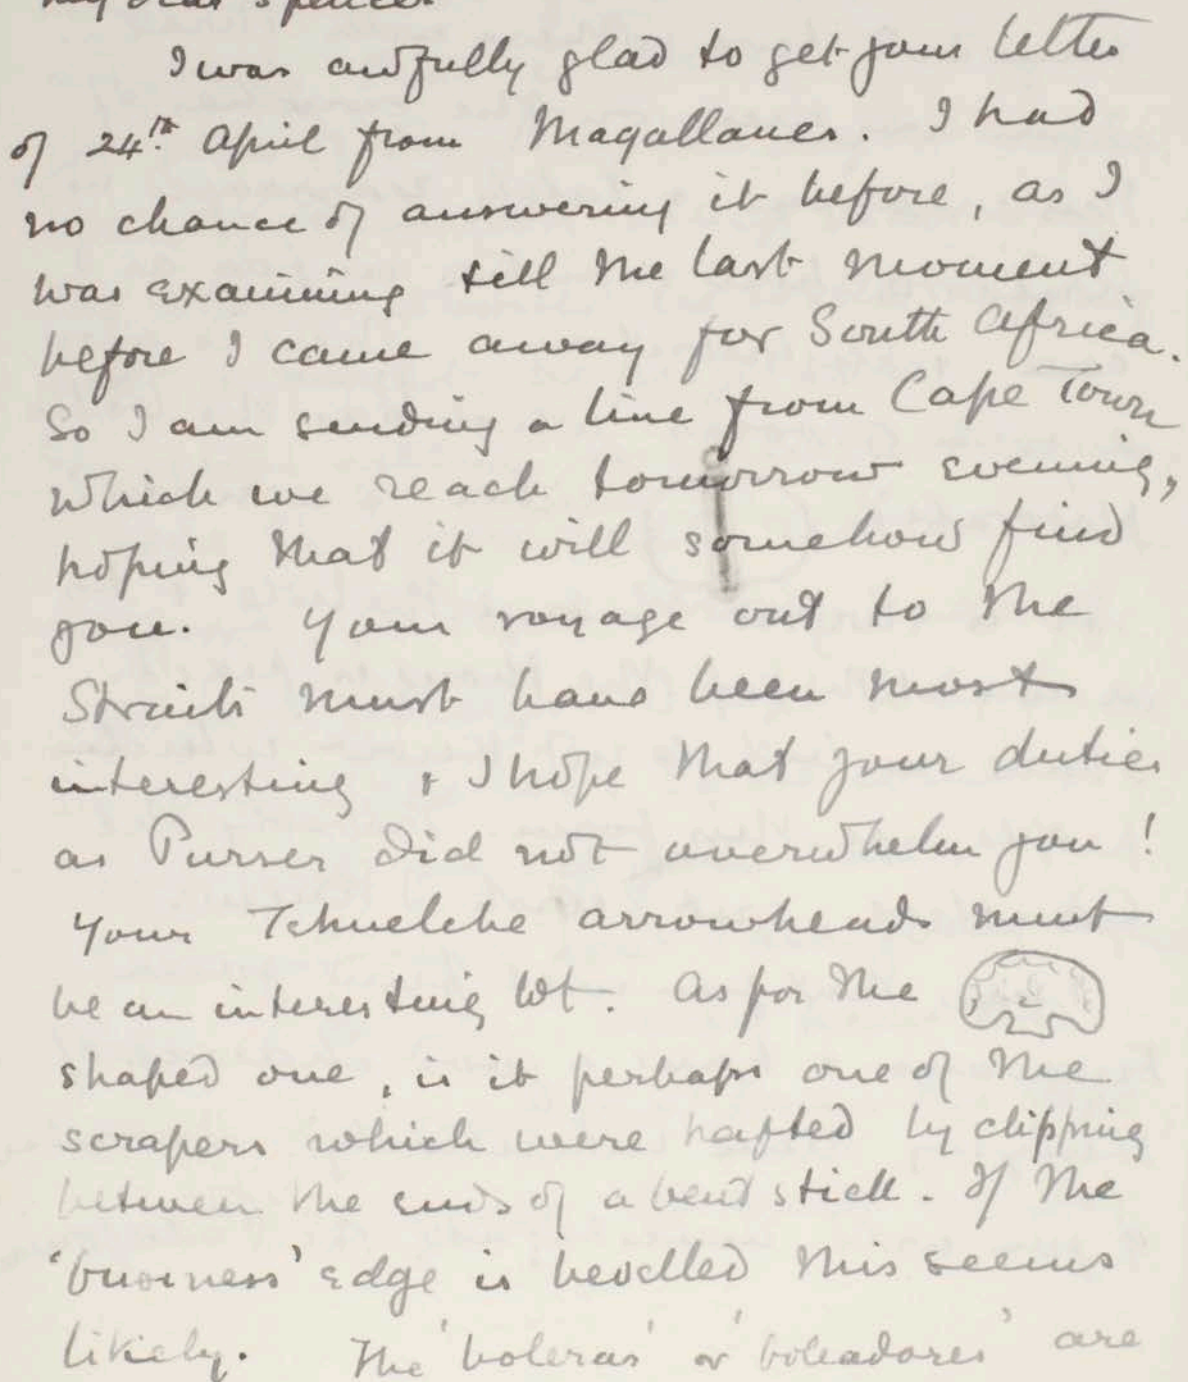 My dear Spencer
I was awfully glad to get your letter
of 24th April from Magallanes. I had
no chance of answering it before, as I
was examining till the last moment
before I came away for South Africa.
So I am sending a line from Cape Town
which we reach tomorrow evening,
hoping that it will somehow find
you. Your voyage out to the
Straits must have been most
interesting & I hope that your duties
as Purser did not overwhelm you!
Your Tehuelche arrowheads must
be an interesting lot. As for the
shaped one, is it perhaps one of the
scrapers which were hafted by clipping
between the ends of a bent stick. If the
'business' edge is bevelled this seems
likely. The 'boleras' or 'boleadores' are